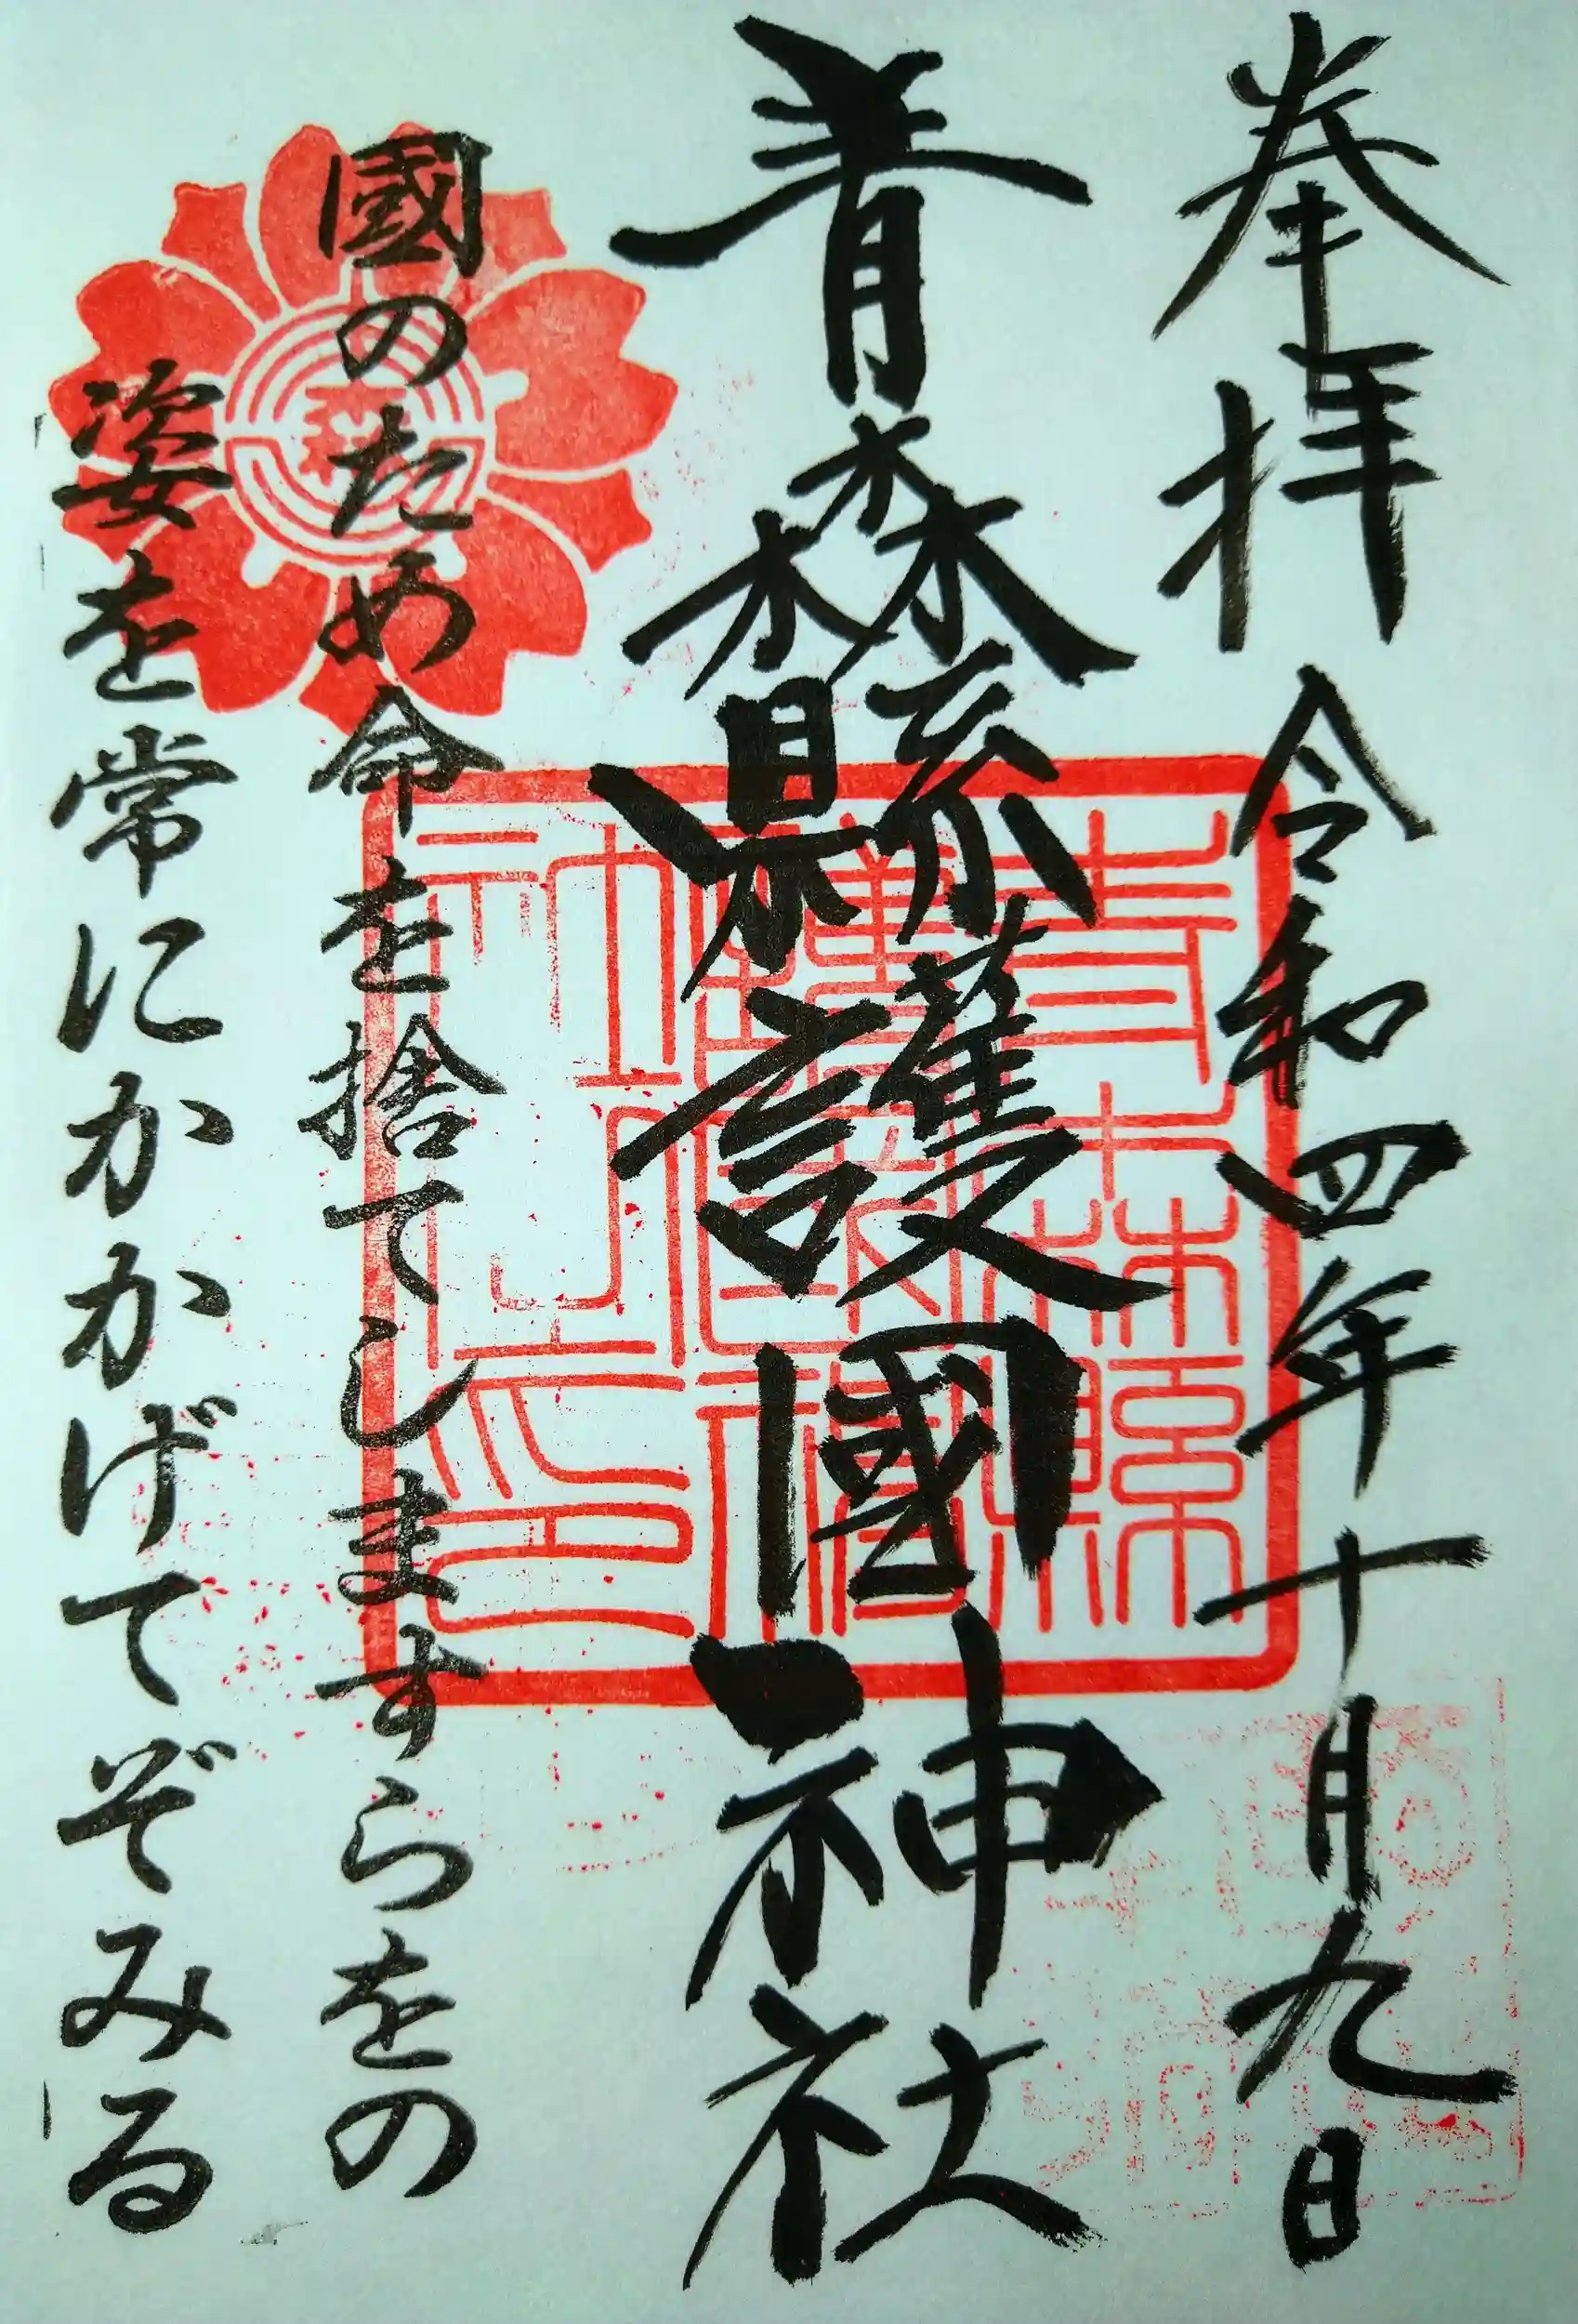 奉拝 令和四年十月九日
青森縣護國神社
國のため命を捨てしますらをの
姿を常にかかげてぞみる
青森縣護國神社之印